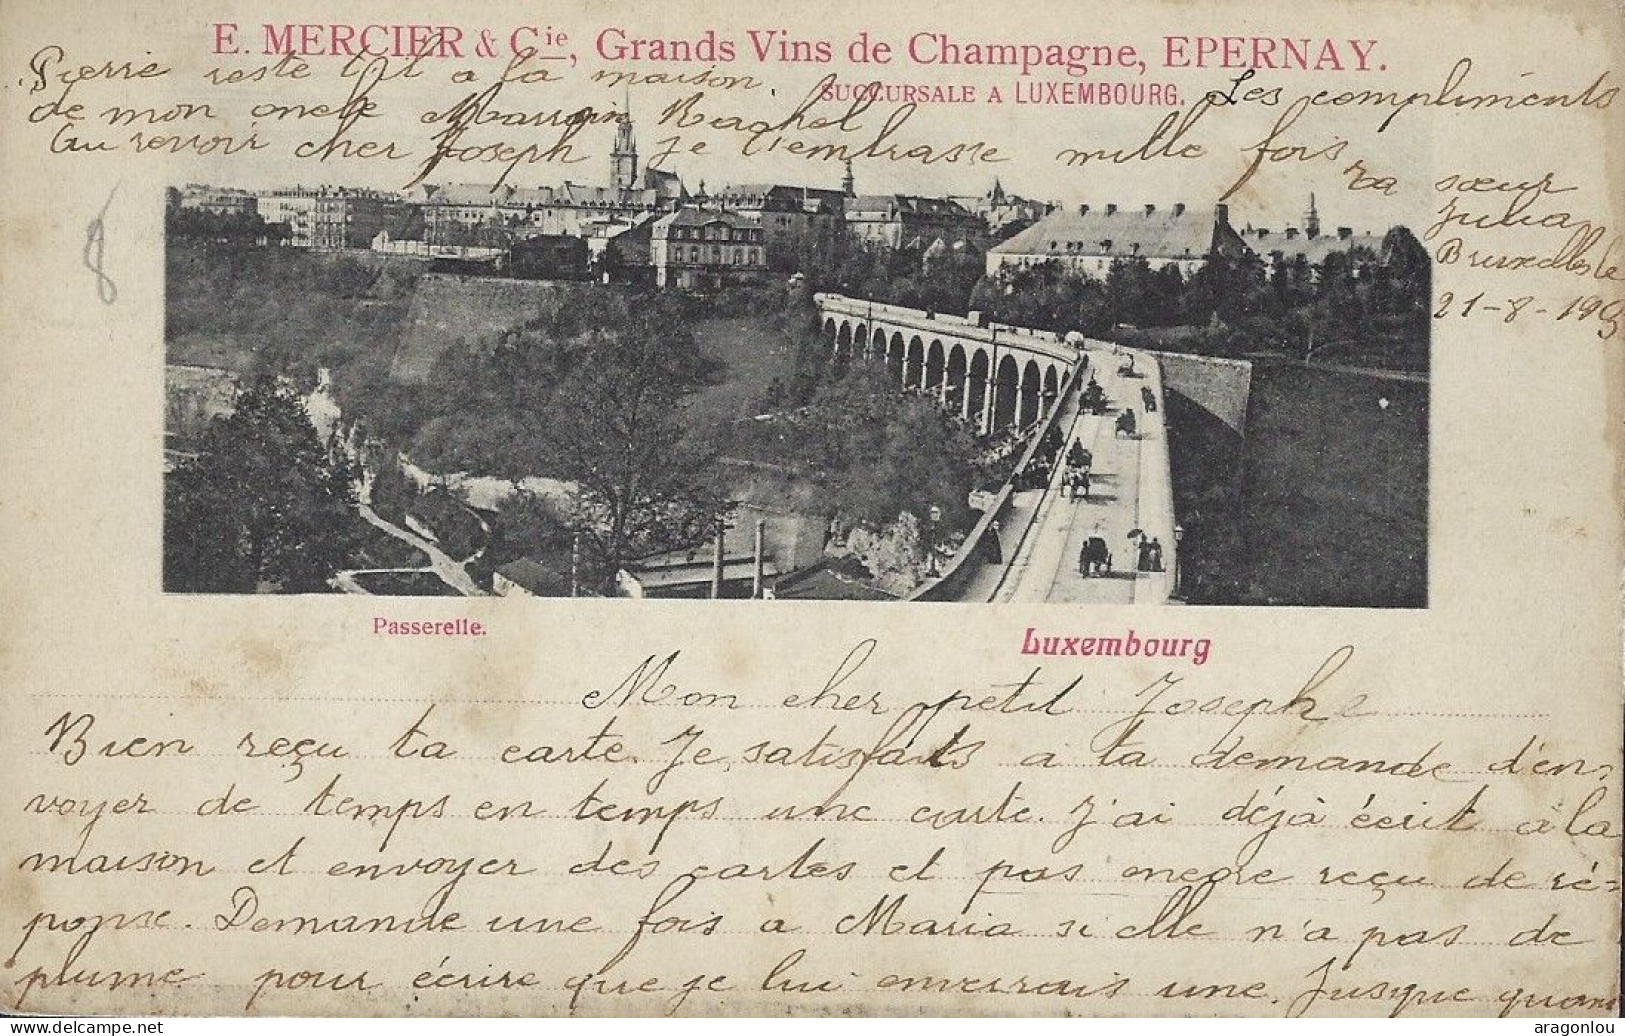 E. MERCIER & Cie, Grands Vins de Champagne, EPERNAY.
SUCCURSALE A LUXEMBOURG.
Passerelle.
Luxembourg
8
Mon cher petit Joseph
Bien reçu ta carte. Je satisfaits a ta demande d'en-
voyer de temps en temps une carte. J'ai déjà écrit à la
maison et envoyer des cartes et pas encore reçu de ré-
ponse. Demande une fois a Maria si elle n'a pas de
plume pour écrire que je lui enverrais une. Jusque quand
Pierre reste t'il a la maison. Les compliments
de mon oncle Rachel
Au revoir cher Joseph je t'embrasse mille fois
Ta sœur
Julia
Bruxelles le
21-8-190
aragonlou